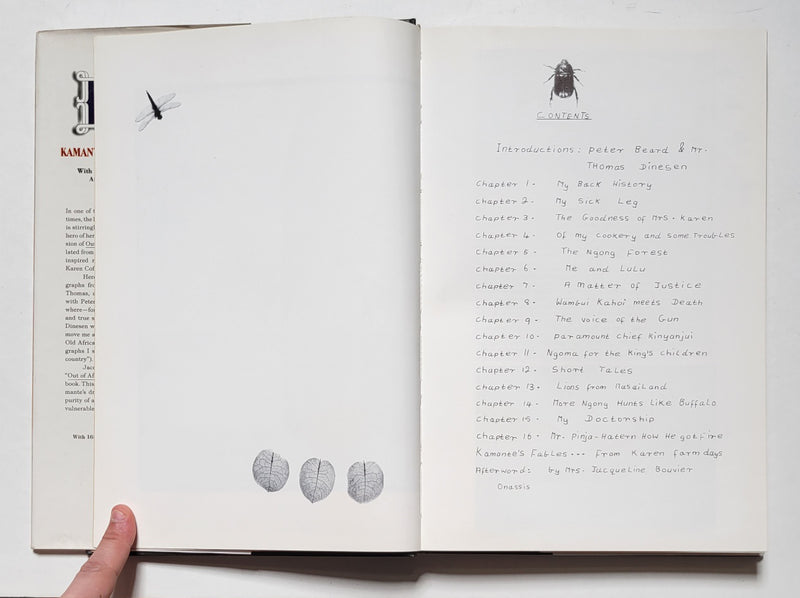 KAMANT
With
A
In one of t
times, the l
is stirringl
hero of her
sion of Ou
lated from
inspired r
Karen Cof
Here
graphs fro
Thomas, c
with Peter
where—for
and true s
Dinesen w
move me s
Old Africa
graphs I s
country").
Jac
"Out of Af
book. This
mante's dr
purity of a
vulnerable
With 16
CONTENTS
Introductions: Peter Beard & Mr.
Thomas Dinesen
Chapter 1 - My Back History
Chapter 2 - My Sick Leg
Chapter 3 - The Goodness of Mrs. Karen
Chapter 4 - Of my Cookery and Some Troubles
Chapter 5 - The Ngong Forest
Chapter 6 - Me and LuLu
Chapter 7 - A Matter of Justice
Chapter 8 - Wambui Kahoi meets Death
Chapter 9 - The Voice of the Gun
Chapter 10 - Paramount Chief Kinyanjui
Chapter 11 - Ngoma for the King's Children
Chapter 12 - Short Tales
Chapter 13 - Lions from Masailand
Chapter 14 - More Ngong Hunts Like Buffalo
Chapter 15 - My Doctorship
Chapter 16 - Mr. Pinja-Hatern How He got fire
Kamante's Fables--- From Karen farm days
Afterword: by Mrs. Jacqueline Bouvier
Onassis